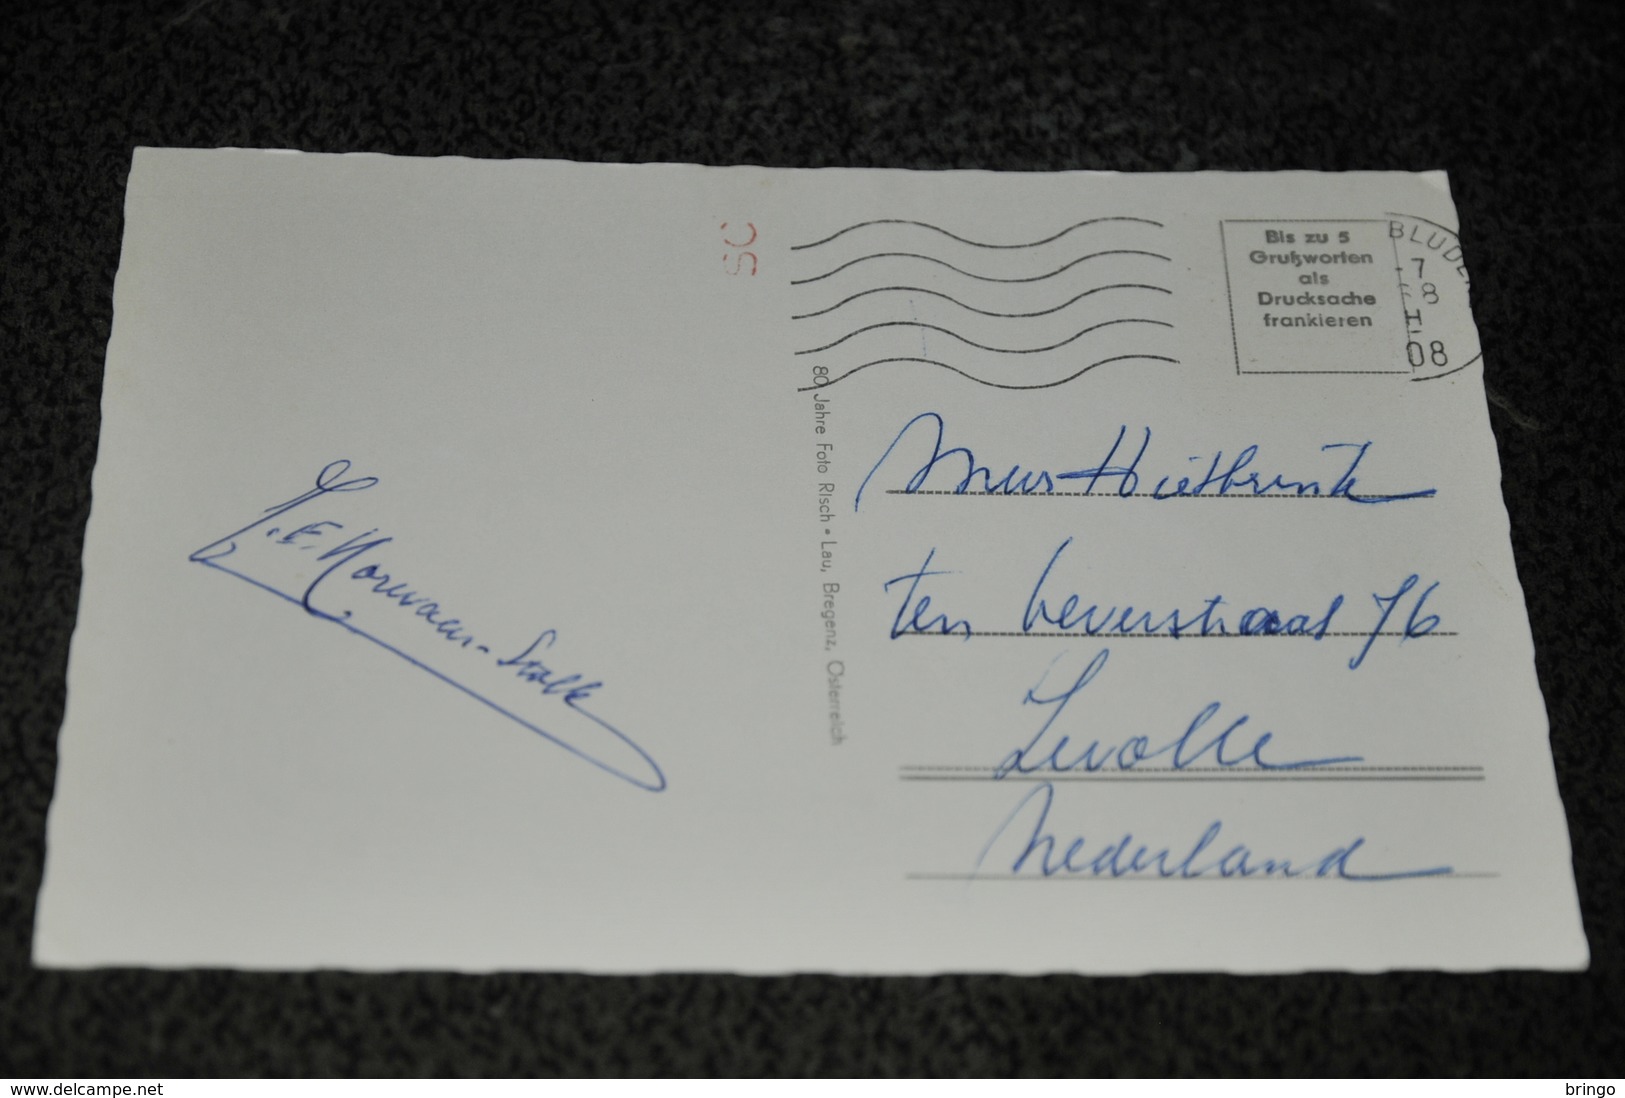 SC
Bis zu 5
Grußworten
als
Drucksache
frankieren
BLUDE
7
8
08
80 Jahre Foto Risch • Lau, Bregenz, Österreich
J.E. Norwaar-Stolk
Hietbrink
ten 76
Zwolle
Nederland
www.delcampe.net
bringo